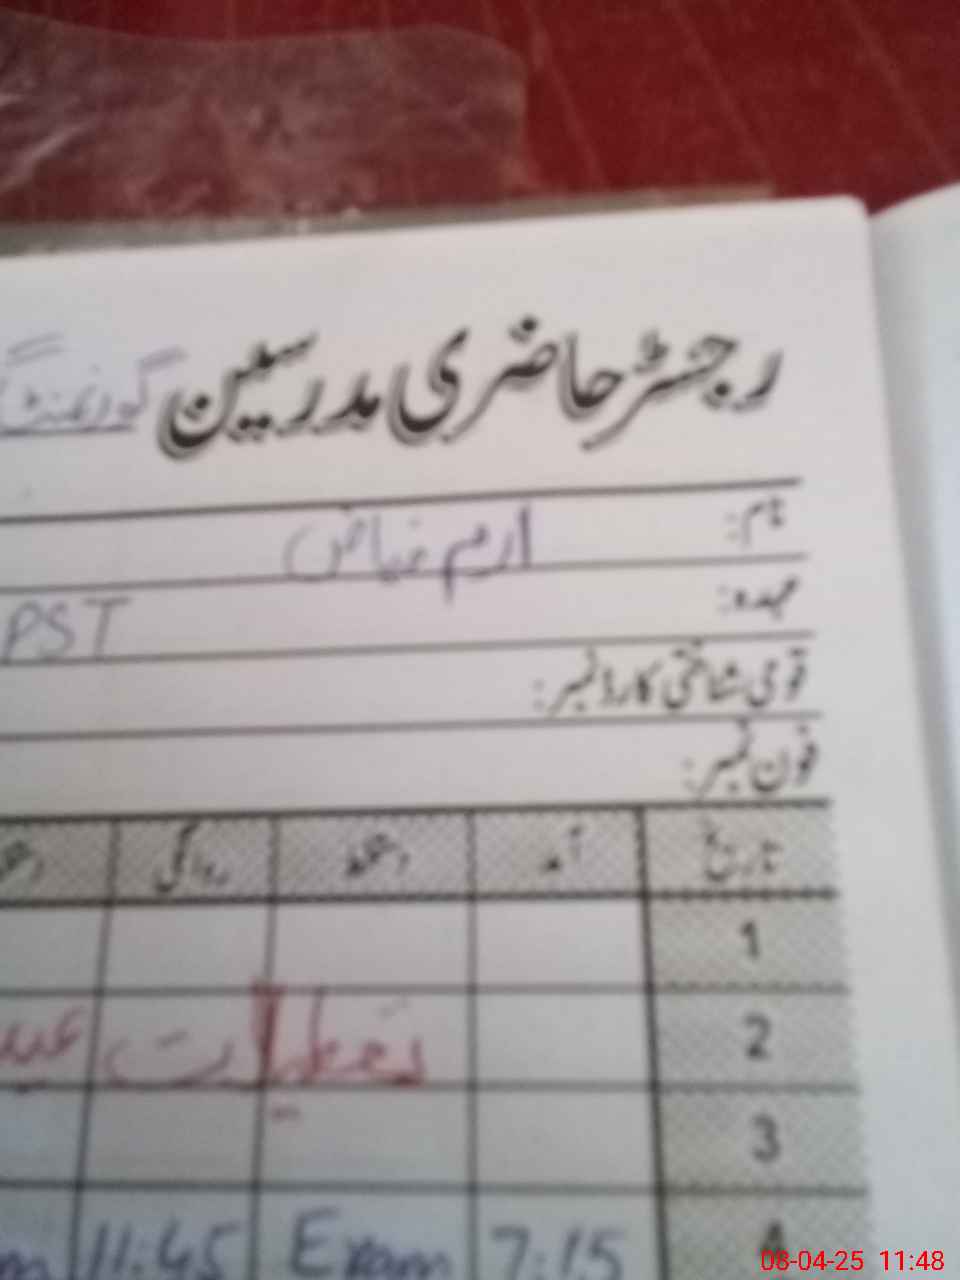 رجسٹر حاضری مدرسین گورنمنٹ
نام: ارم ریاض
عہدہ: PST
قومی شناختی کارڈ نمبر:
فون نمبر:
تاریخ آمد دستخط روانگی
1
2 تعطیلات عید
3
4 7:15 Exam 11:45
08-04-25 11:48